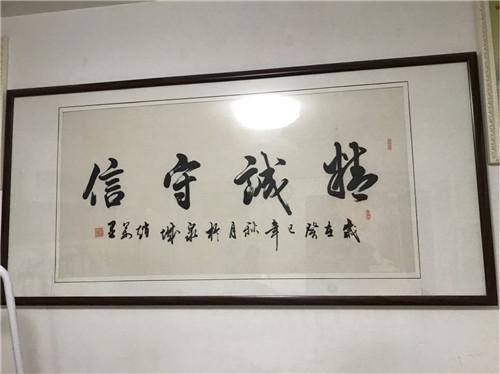 精誠守信
歲在癸巳年秋月於泉城趙善玉